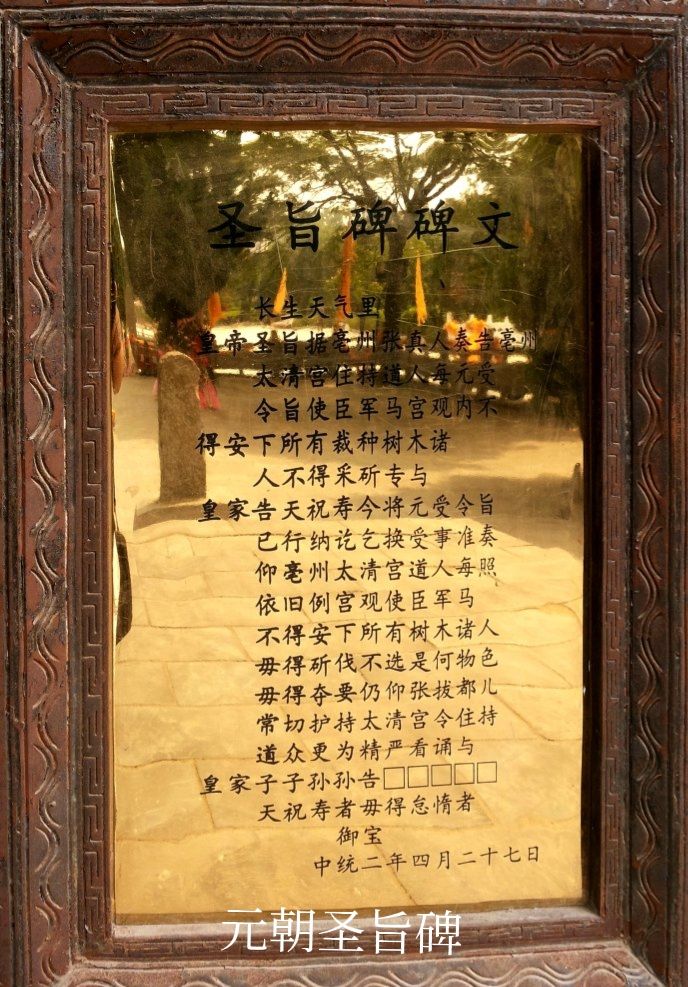 圣旨碑碑文
长生天气里
皇帝圣旨据亳州张真人奏告亳州
太清宫住持道人每元受
令旨使臣军马宫观内不
得安下所有裁种树木诸
人不得采斫专与
皇家告天祝寿今将元受令旨
已行纳讫乞换受事准奏
仰亳州太清宫道人每照
依旧例宫观使臣军马
不得安下所有树木诸人
毋得斫伐不选是何物色
毋得夺要仍仰张拔都儿
常切护持太清宫令住持
道众更为精严看诵与
皇家子子孙孙告□□□□□
天祝寿者毋得怠惰者
御宝
中统二年四月二十七日
元朝圣旨碑